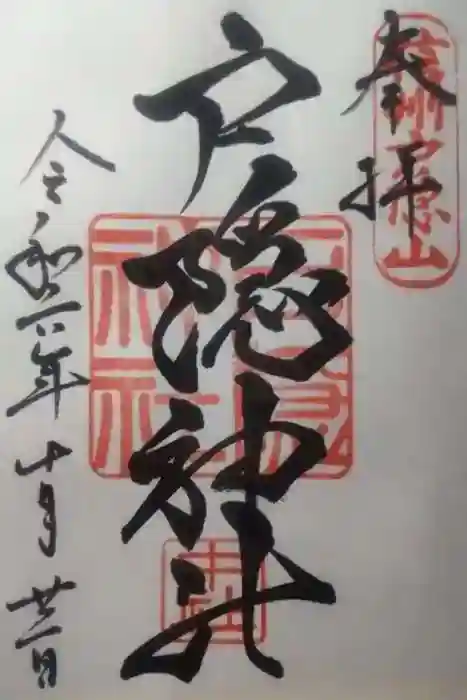 奉拝
信州戸隠山
戸隠神社
戸隠神社
中社
令和 年十月廿一日